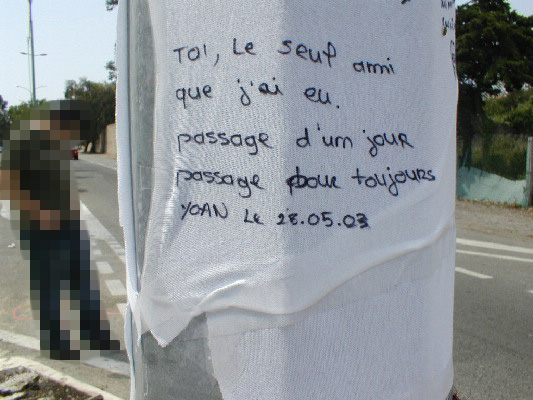 Toi, Le seul ami
que j'ai eu.
passage d'un jour
passage pour toujours
YOAN Le 28.05.03